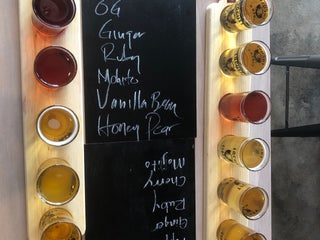 OG
Ginger
Ruby
Mojito
Vanilla Bean
Honey Pear
Mojito
Cherry
Ruby
Ginger